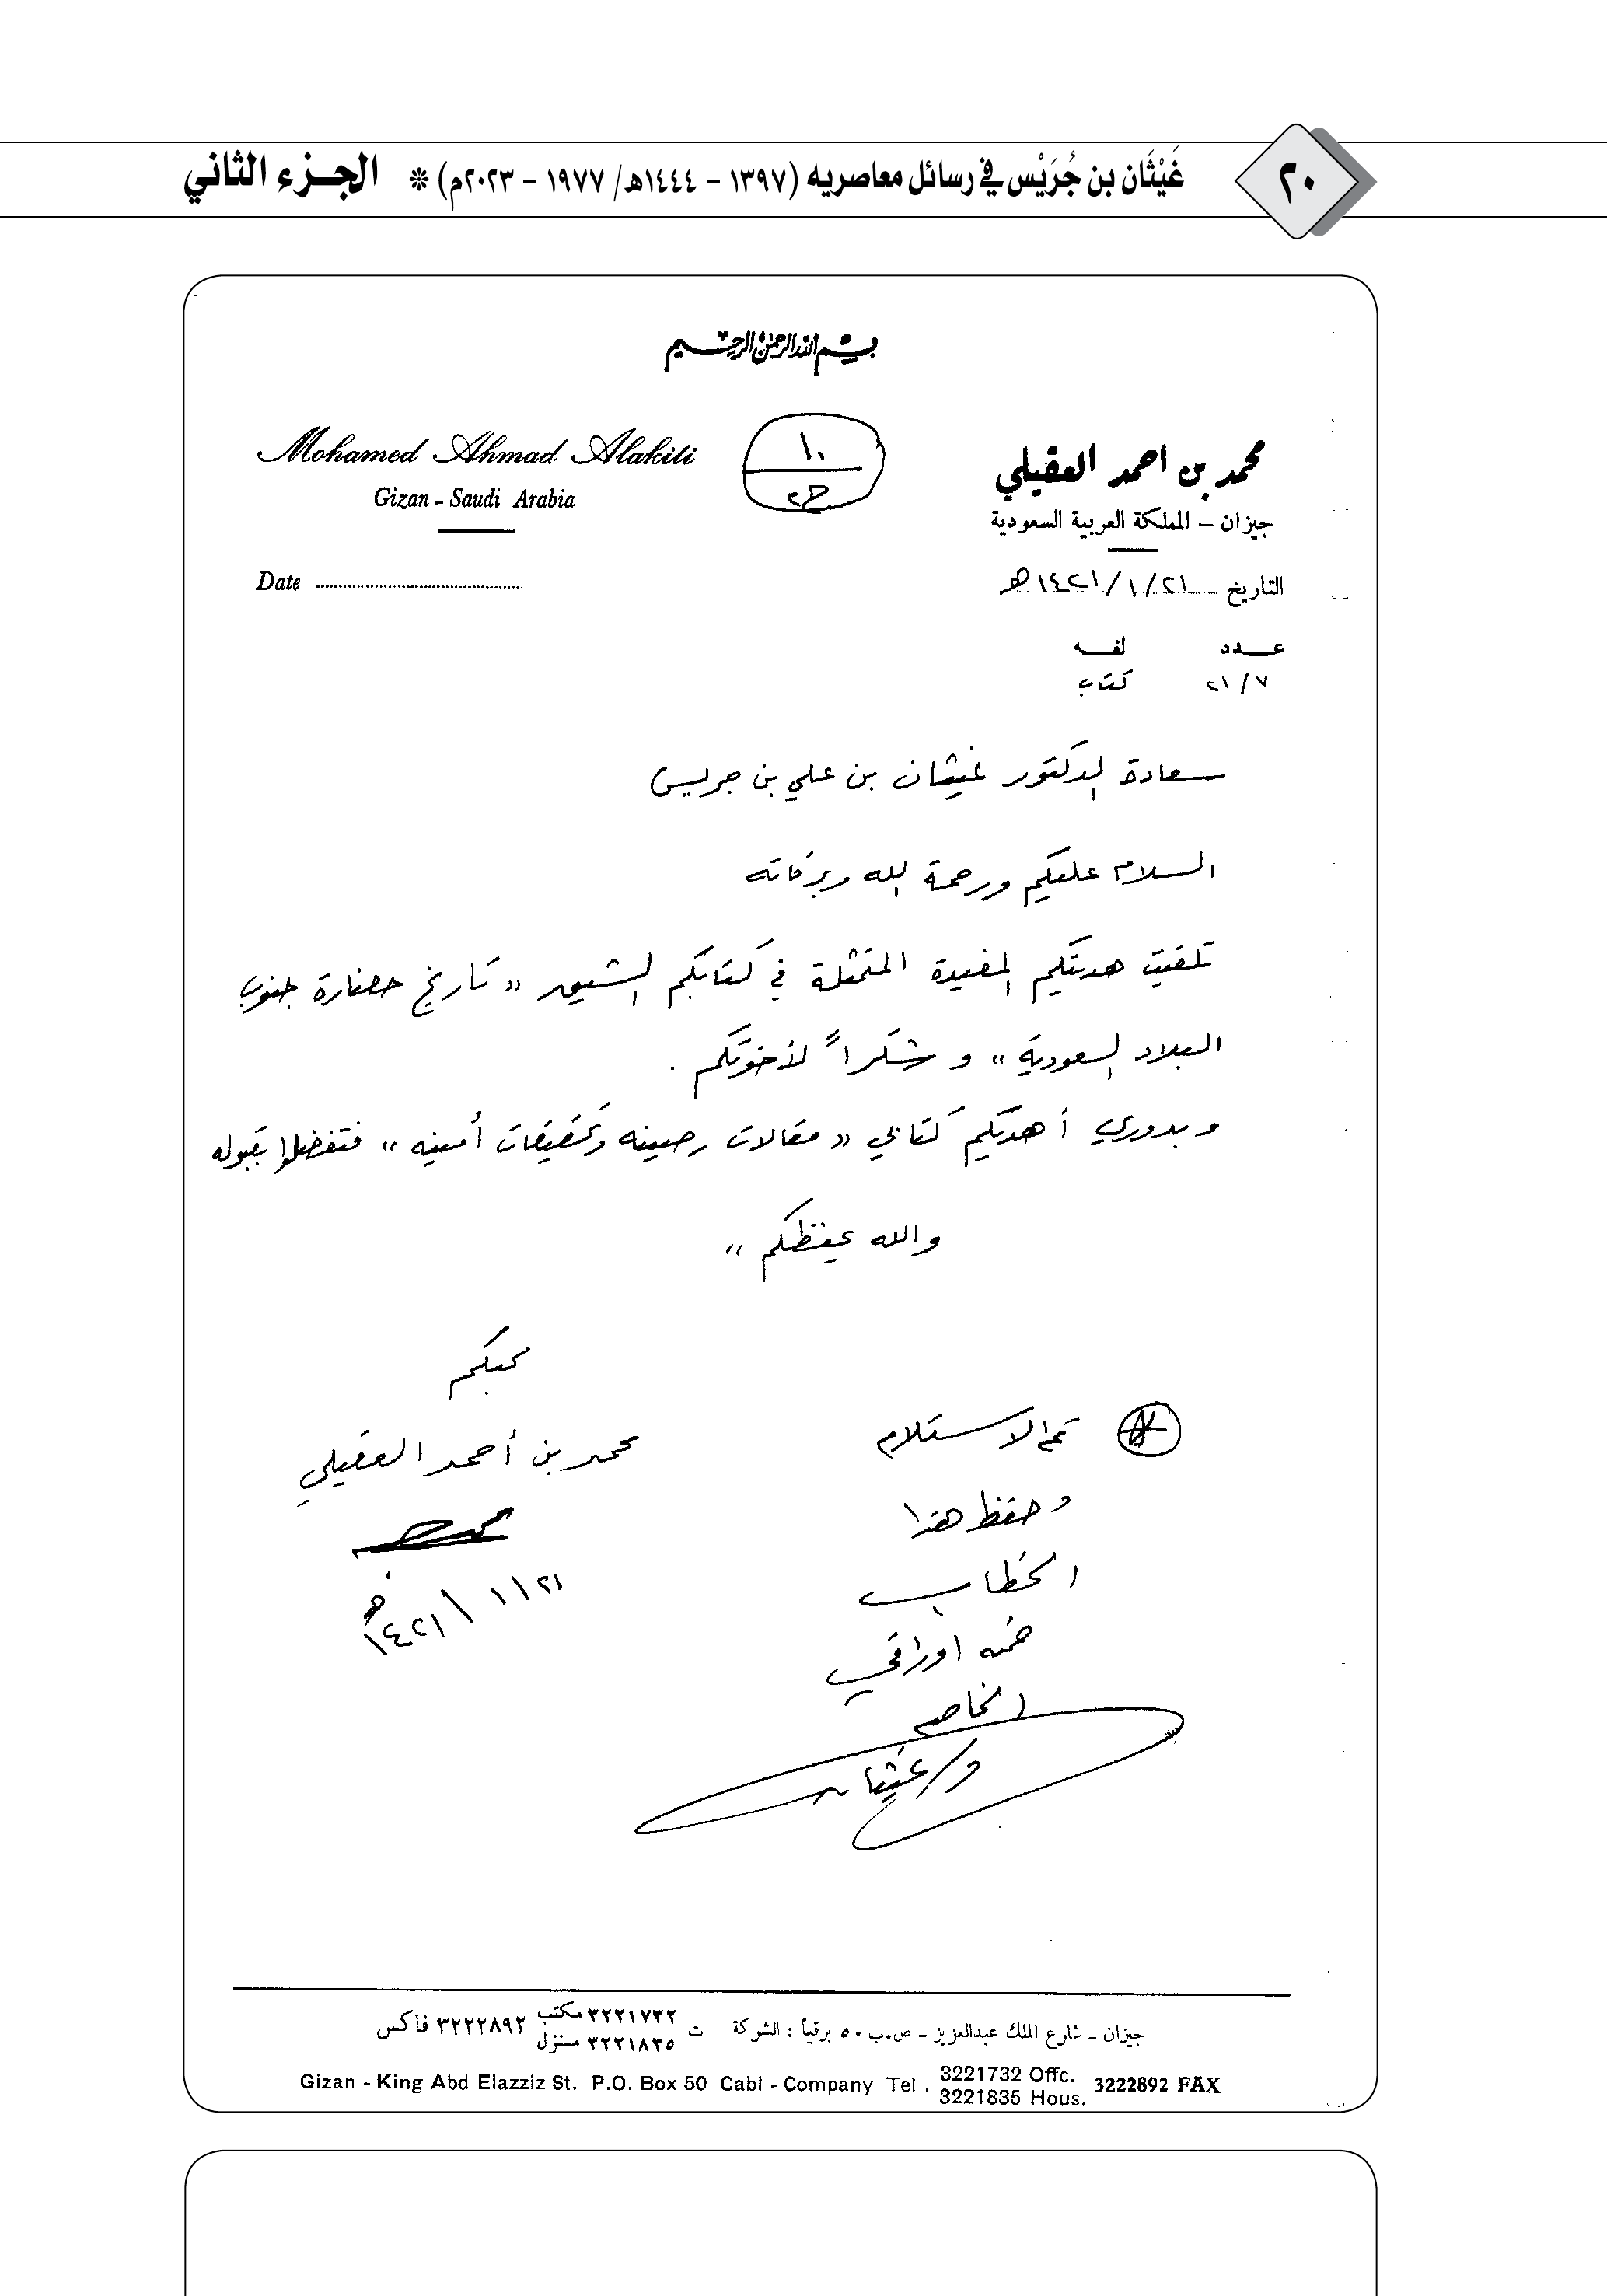 ٢٠
غَيْثَان بن جُرَيْس في رسائل معاصريه (١٣٩٧ - ١٤٤٤هـ/ ١٩٧٧ - ٢٠٢٣م) * الجزء الثاني
بسم الله الرحمن الرحيم
محمد بن احمد العقيلي
جيزان - المملكة العربية السعودية
التاريخ ٢١/١/١٤٢١هـ
١٠
ج٢
Mohamed Ahmad Alakili
Gizan - Saudi Arabia
Date
عدد لفه
٢١/٧ كتاب
سعادة الدكتور غيثان بن علي بن جريس
السلام عليكم ورحمة الله وبركاته
تلقيت هديتكم المفيدة المتمثلة في كتابكم الشيق « تاريخ حضارة جنوب
البلاد السعودية » و شكراً لأخوتكم .
وبدوري أهديكم كتابي « مقالات رصينه وتحقيقات أمينه » فتفضلوا بقبوله
والله يحفظكم ،،
محبكم
محمد بن أحمد العقيلي
٢١/١/١٤٢١هـ
تم الاستلام
وحفظ هذا
الخطاب
ضمن اوراقي
الخاصة
د/غيثان
جيزان - شارع الملك عبدالعزيز - ص.ب ٥٠ برقياً : الشركة ت ٣٢٢١٧٣٢ مكتب ٣٢٢١٨٣٥ منزل ٣٢٢٢٨٩٢ فاكس
Gizan - King Abd Elazziz St. P.O. Box 50 Cabl - Company Tel . 3221732 Offc. 3221835 Hous. 3222892 FAX